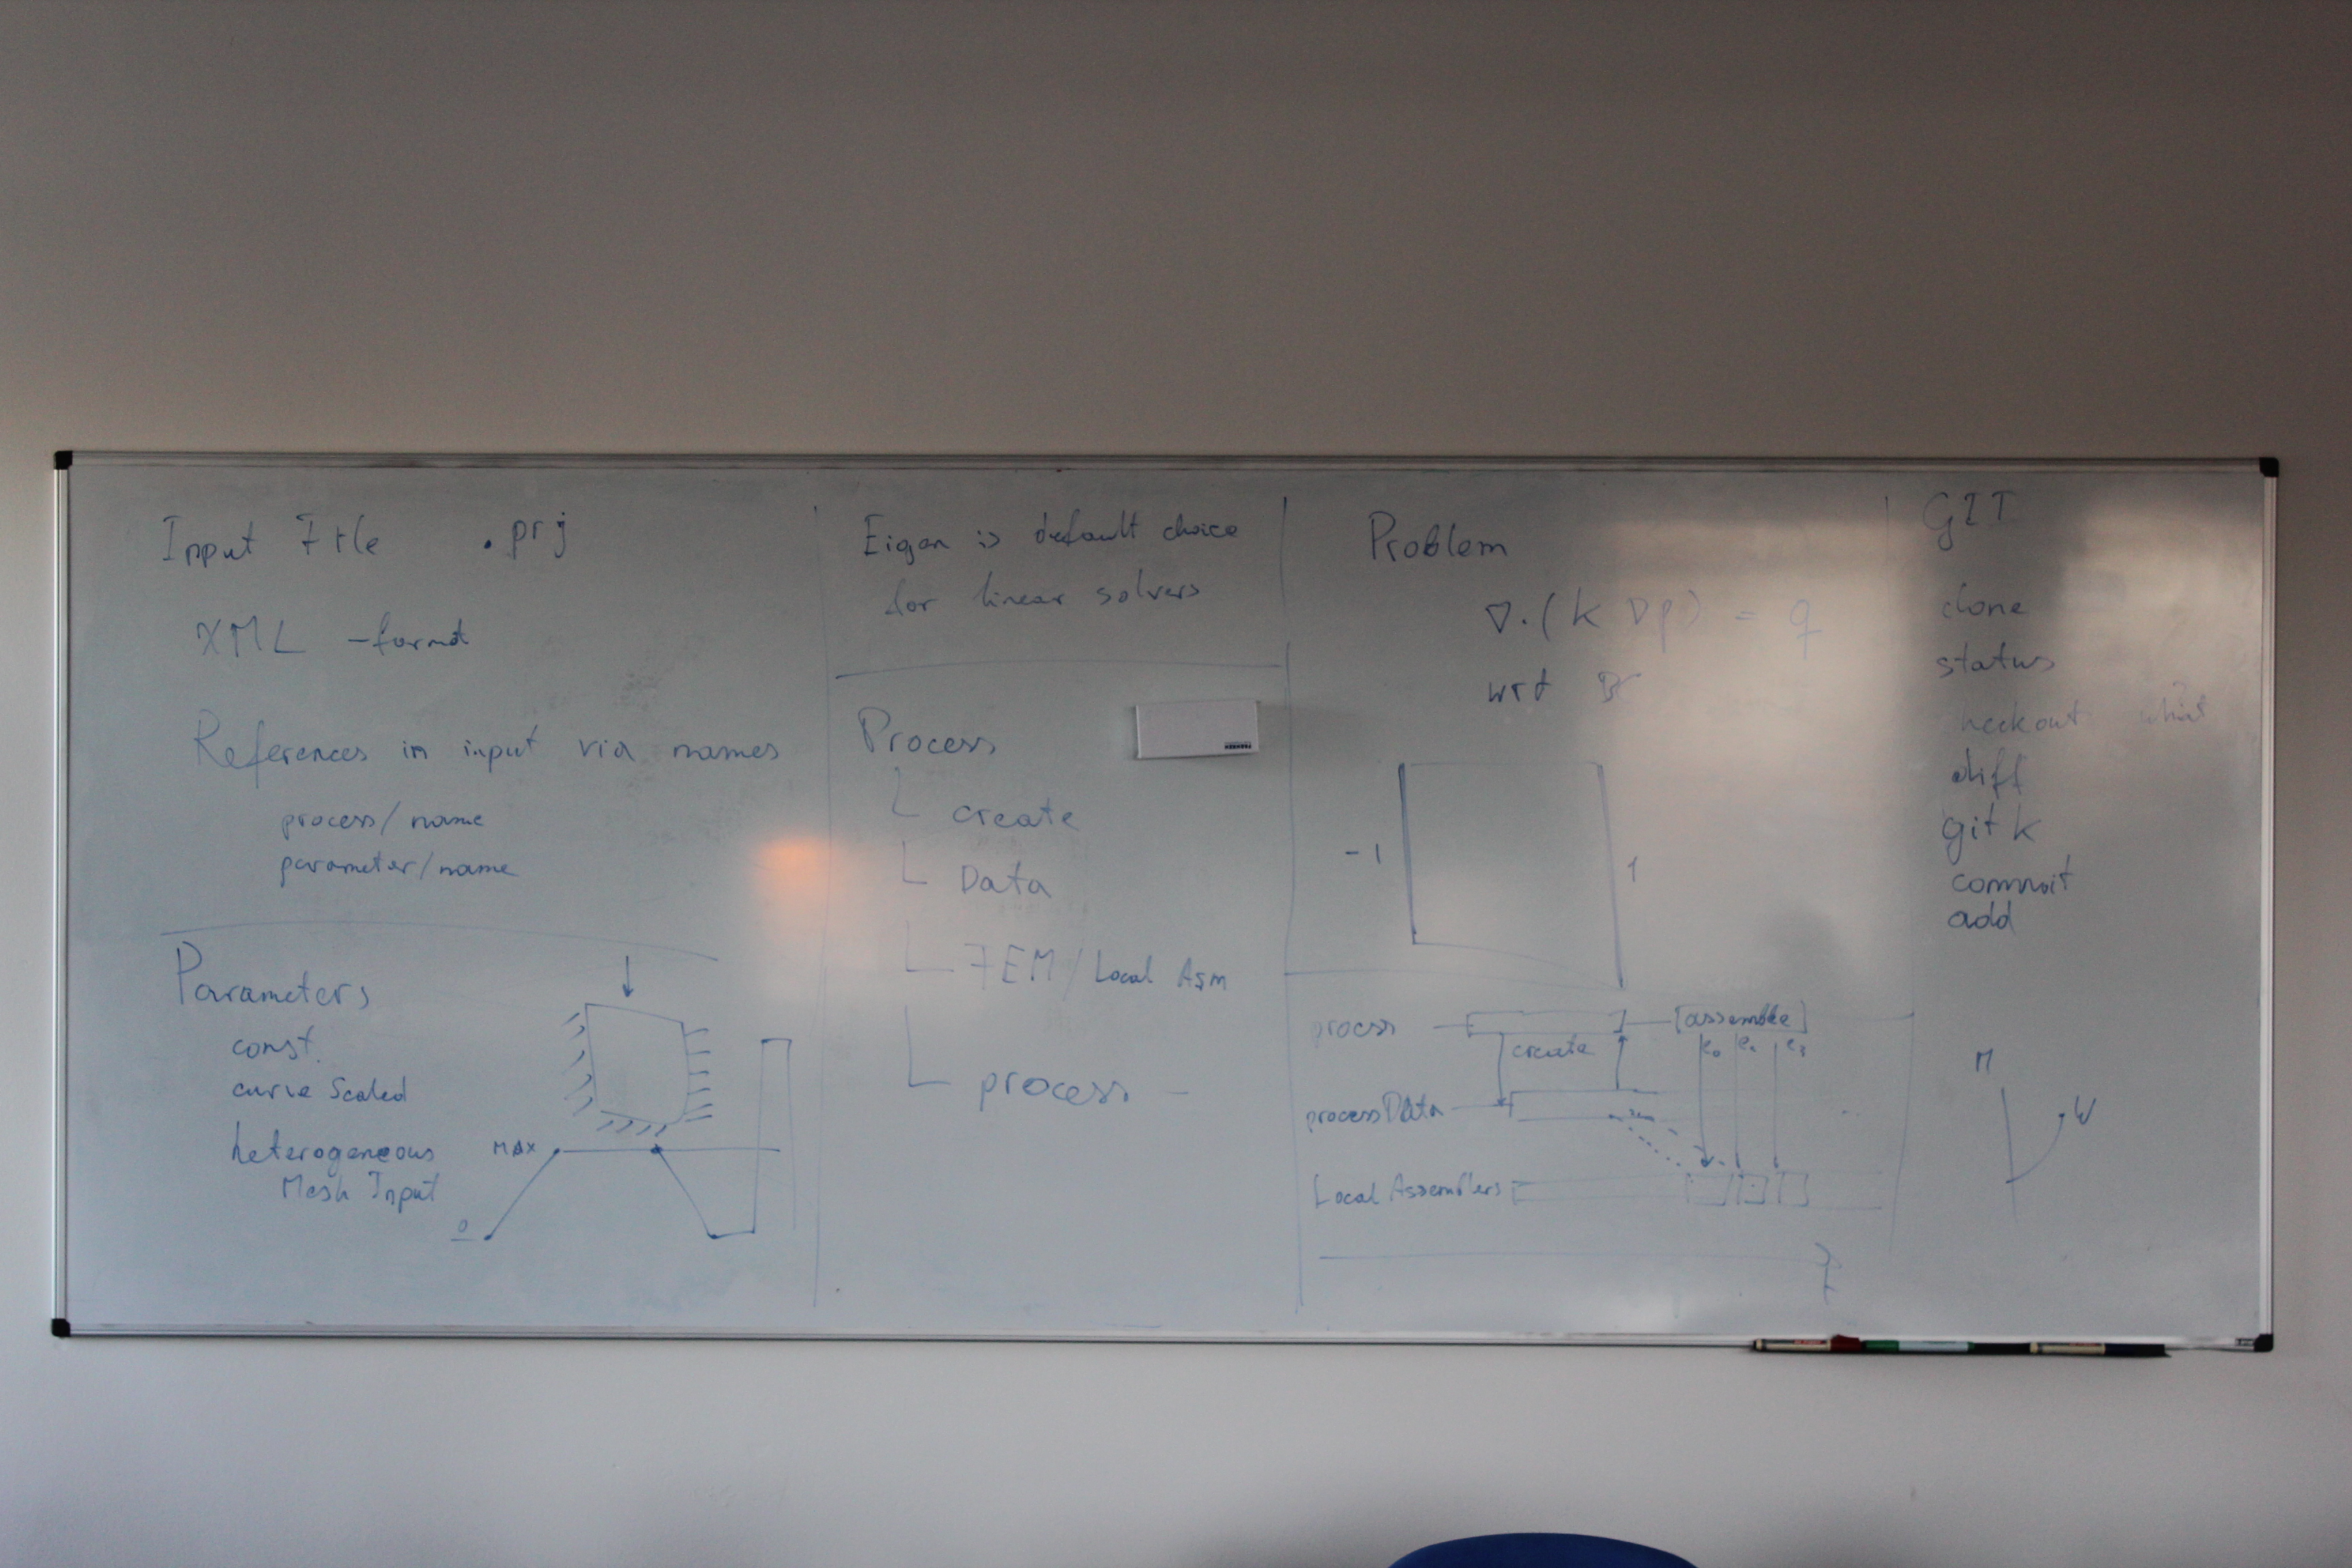 Input File .prj
XML - format
References in input via names
process/name
parameter/name
Parameters
const.
curve Scaled
heterogeneous
Mesh Input
MAX
0
Eigen is default choice
for linear solvers
Process
create
Data
FEM / Local Asm
process -
Problem
∇·(k ∇p) = q
wrt
-1 1
process [assemble]
create e₀ e₁ e₃
processData
Local Assemblers
t
GIT
clone
status
heckout what
diff
gitk
commit
add
M
W